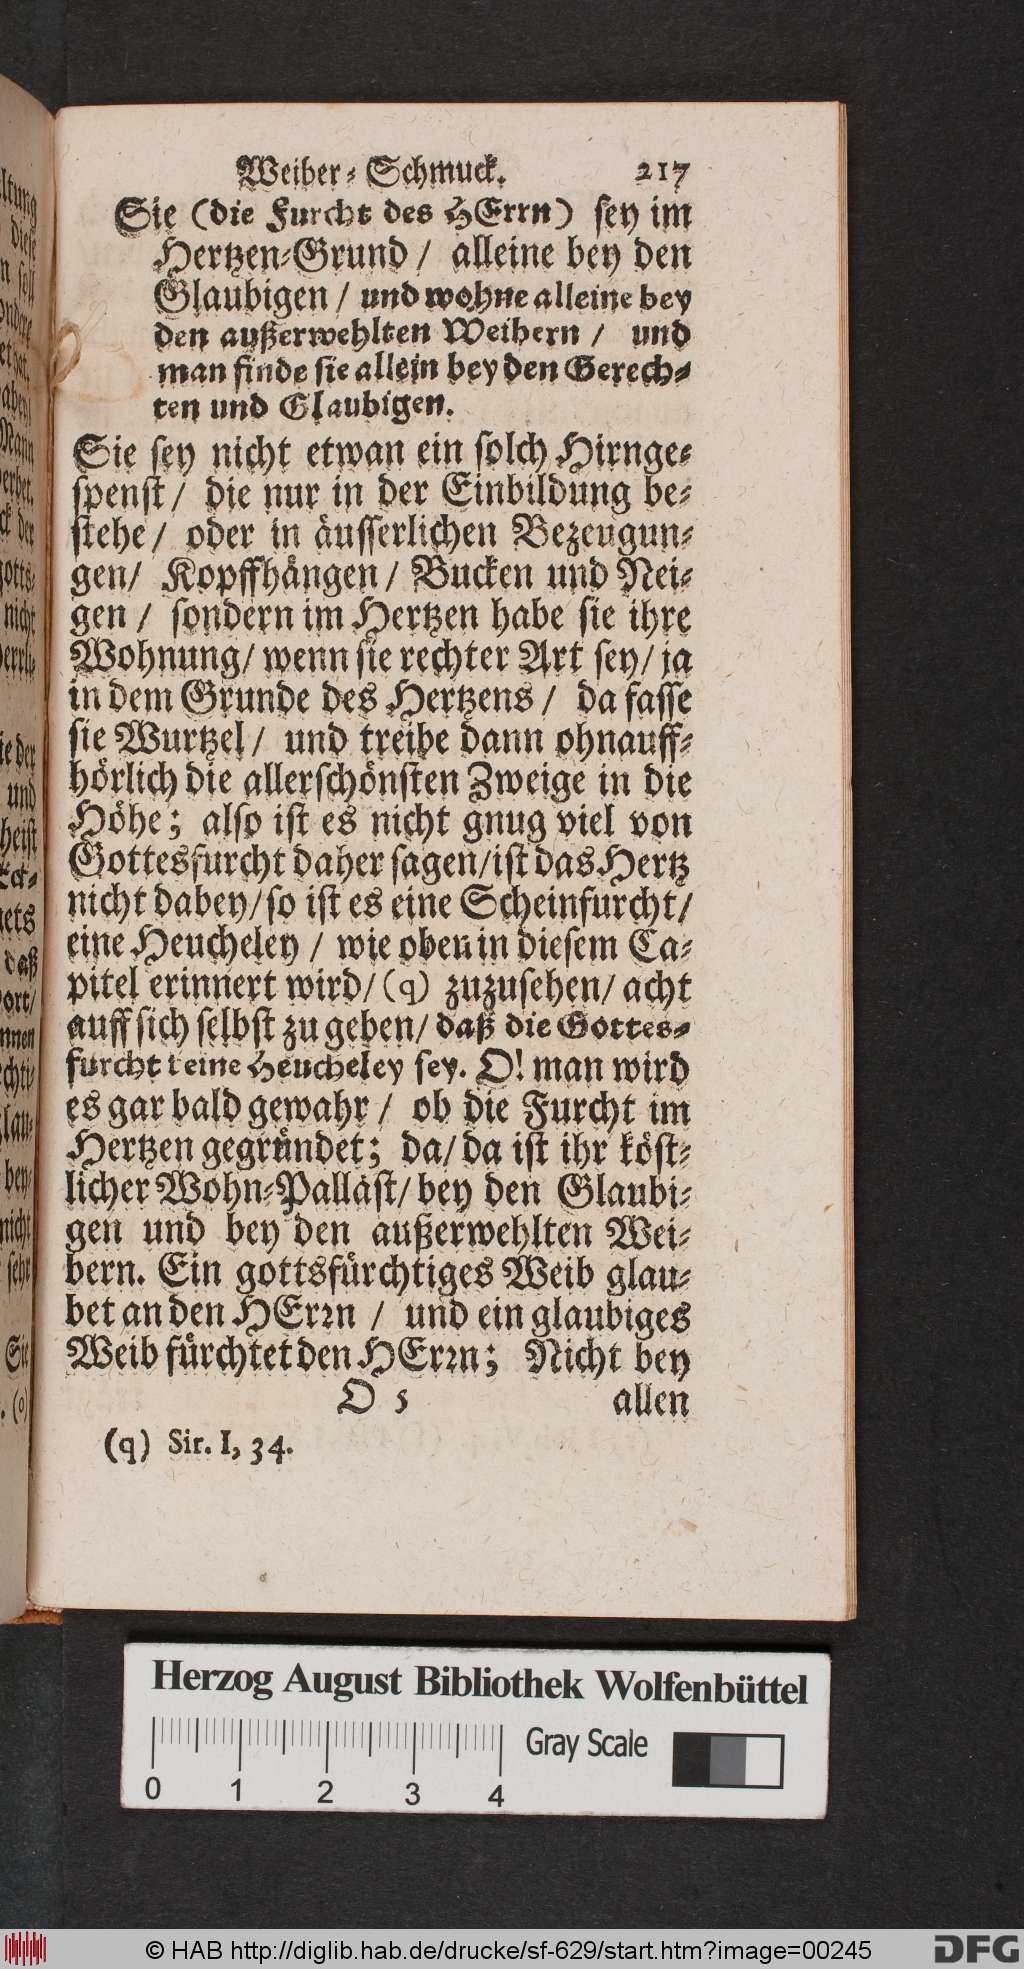 Weiber-Schmuck. 217
Sie (die Furcht des HErrn) sey im
Hertzen-Grund / alleine bey den
Glaubigen / und wohne alleine bey
den außerwehlten Weibern / und
man finde sie allein bey den Gerech-
ten und Glaubigen.
Sie sey nicht etwan ein solch Hirnge-
spenst / die nur in der Einbildung be-
stehe / oder in äusserlichen Bezeugun-
gen / Kopffhängen / Bucken und Nei-
gen / sondern im Hertzen habe sie ihre
Wohnung / wenn sie rechter Art sey / ja
in dem Grunde des Hertzens / da fasse
sie Wurtzel / und treibe dann ohnauff-
hörlich die allerschönsten Zweige in die
Höhe; also ist es nicht gnug viel von
Gottesfurcht daher sagen / ist das Hertz
nicht dabey / so ist es eine Scheinfurcht /
eine Heucheley / wie oben in diesem Ca-
pitel erinnert wird / (q) zuzusehen / acht
auff sich selbst zu geben / daß die Gottes-
furcht keine Heucheley sey. O! man wird
es gar bald gewahr / ob die Furcht im
Hertzen gegründet; da / da ist ihr köst-
licher Wohn-Pallast / bey den Glaubi-
gen und bey den außerwehlten Wei-
bern. Ein gottsfürchtiges Weib glau-
bet an den HErrn / und ein glaubiges
Weib fürchtet den HErrn; Nicht bey
O 5 allen
(q) Sir. I, 34.
Herzog August Bibliothek Wolfenbüttel
Gray Scale
0 1 2 3 4
© HAB http://diglib.hab.de/drucke/sf-629/start.htm?image=00245
DFG